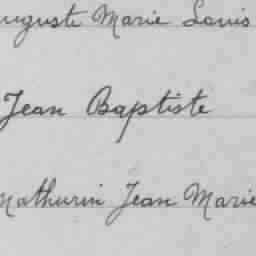 Auguste Marie Louis
Jean Baptiste
Mathurin Jean Marie